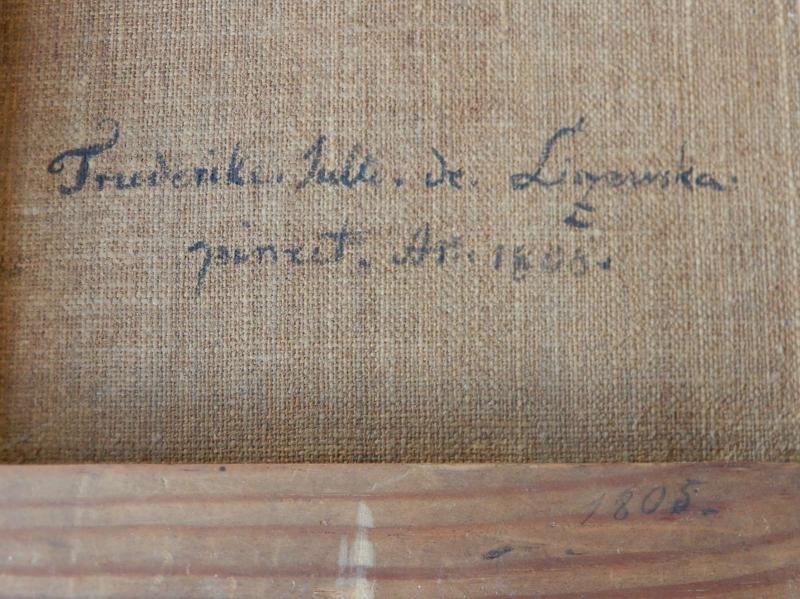 Fruderike. Julie. de. Liszewska.
pinxit. An. 1805.
1805.